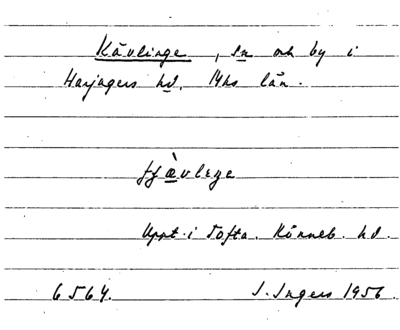 Kävlinge, sn och by i
Harjagers hd, Mhs län.
Uppt. i Tofta. Rönneb. hd.
6564. I. Ingers 1956.